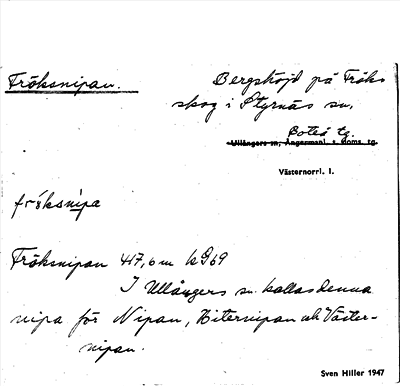 Fröksnipan.
Bergshöjd på Fröks-
skog i Styrnäs sn,
Boteå tg.
Ullångers sn, Ångermanl. s. doms. tg.
Västernorrl. l.
fröksnipa
Fröksnipan 417,6 m k969
I Ullångers sn. kallas denna
nipa för Nipan, Kiternipan och Väster-
nipan.
Sven Hiller 1947